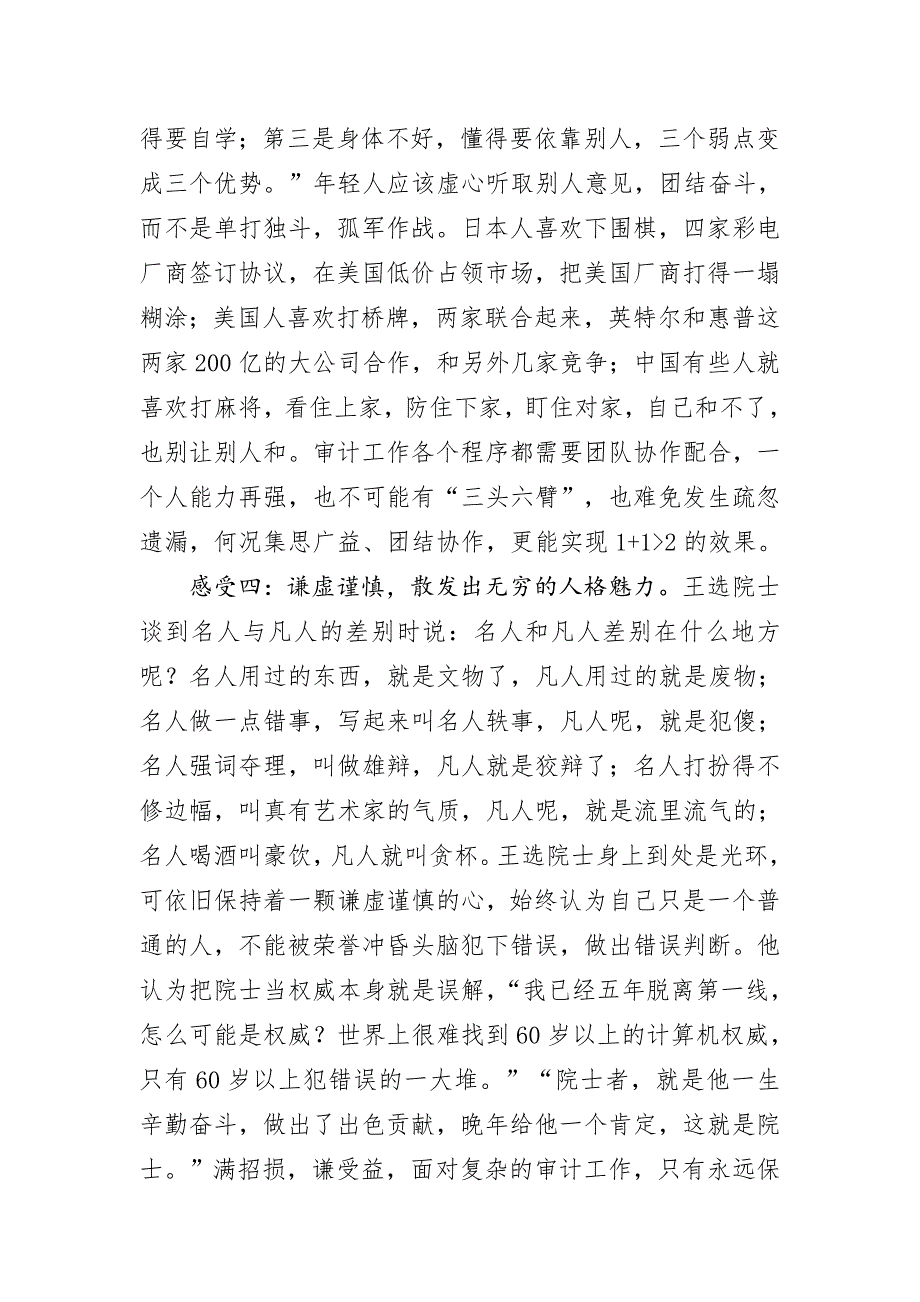 得要自学；第三是身体不好，懂得要依靠别人，三个弱点变
成三个优势。”年轻人应该虚心听取别人意见，团结奋斗，
而不是单打独斗，孤军作战。日本人喜欢下围棋，四家彩电
厂商签订协议，在美国低价占领市场，把美国厂商打得一塌
糊涂；美国人喜欢打桥牌，两家联合起来，英特尔和惠普这
两家 200 亿的大公司合作，和另外几家竞争；中国有些人就
喜欢打麻将，看住上家，防住下家，盯住对家，自己和不了，
也别让别人和。审计工作各个程序都需要团队协作配合，一
个人能力再强，也不可能有“三头六臂”，也难免发生疏忽
遗漏，何况集思广益、团结协作，更能实现 1+1>2 的效果。
感受四：谦虚谨慎，散发出无穷的人格魅力。王选院士
谈到名人与凡人的差别时说：名人和凡人差别在什么地方
呢？名人用过的东西，就是文物了，凡人用过的就是废物；
名人做一点错事，写起来叫名人轶事，凡人呢，就是犯傻；
名人强词夺理，叫做雄辩，凡人就是狡辩了；名人打扮得不
修边幅，叫真有艺术家的气质，凡人呢，就是流里流气的；
名人喝酒叫豪饮，凡人就叫贪杯。王选院士身上到处是光环，
可依旧保持着一颗谦虚谨慎的心，始终认为自己只是一个普
通的人，不能被荣誉冲昏头脑犯下错误，做出错误判断。他
认为把院士当权威本身就是误解，“我已经五年脱离第一线，
怎么可能是权威？世界上很难找到 60 岁以上的计算机权威，
只有 60 岁以上犯错误的一大堆。”“院士者，就是他一生
辛勤奋斗，做出了出色贡献，晚年给他一个肯定，这就是院
士。”满招损，谦受益，面对复杂的审计工作，只有永远保